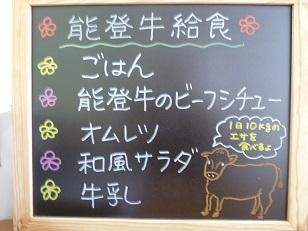 能登牛給食
ごはん
能登牛のビーフシチュー
オムレツ
和風サラダ
牛乳
1日10kgの
エサを
食べるよ